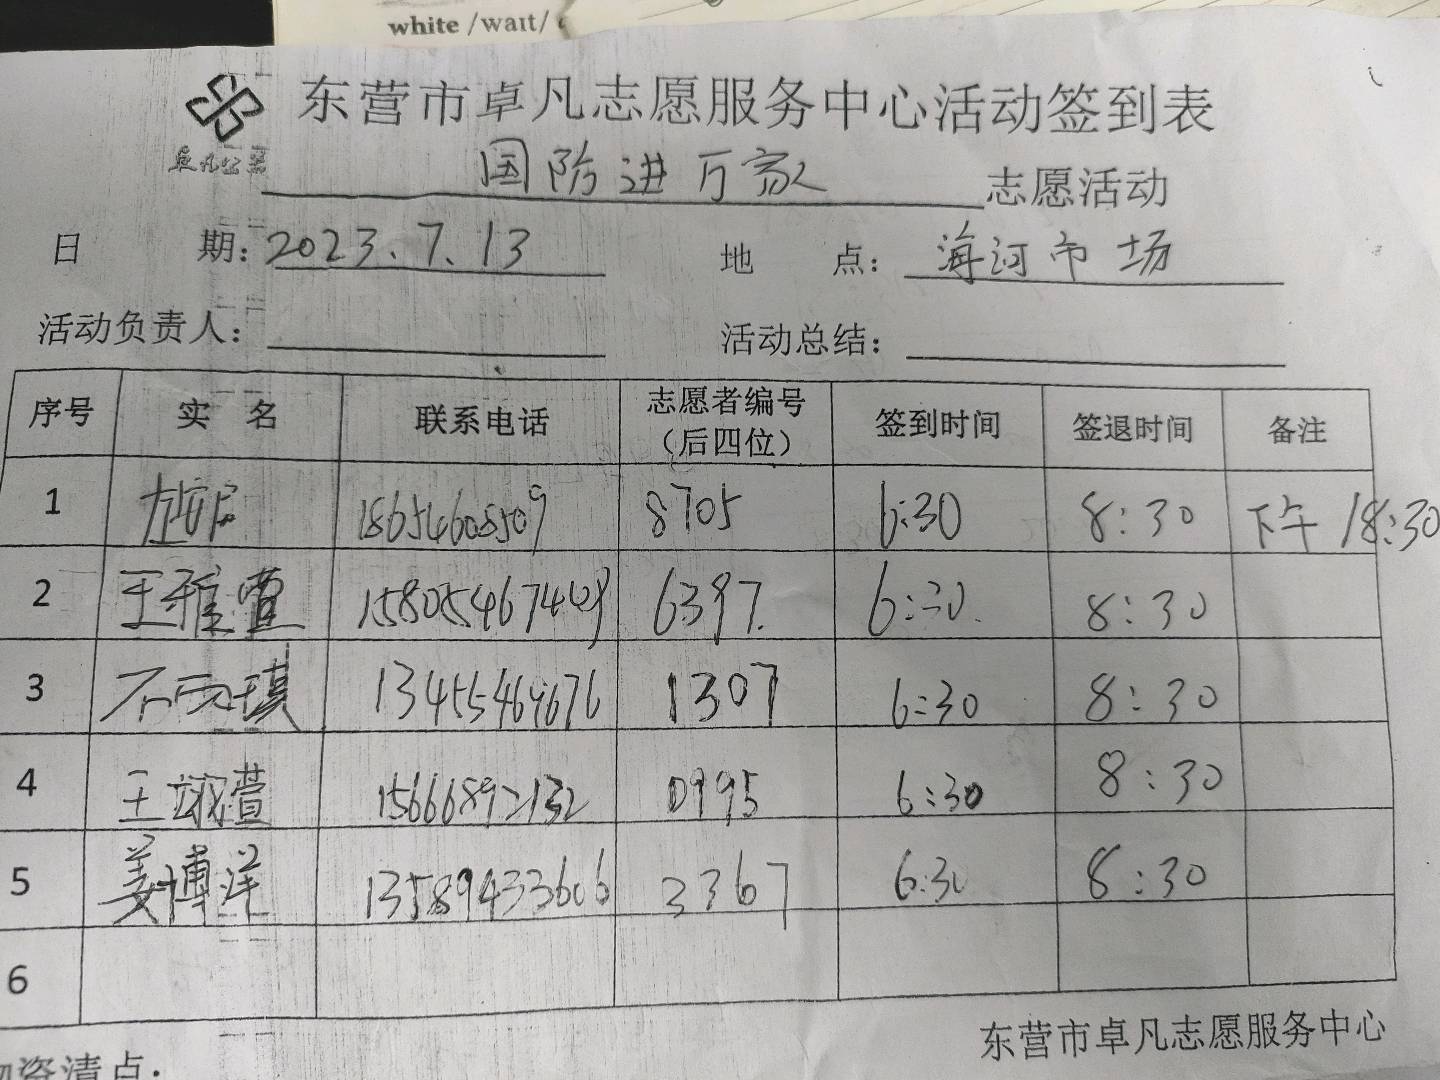 white /wait/
东营市卓凡志愿服务中心活动签到表
卓凡公益
国防进万家 志愿活动
日 期：2023.7.13 地 点：海河市场
活动负责人： 活动总结：
序号 实 名 联系电话 志愿者编号（后四位） 签到时间 签退时间 备注
1 18654608509 8705 6:30 8:30 下午 18:30
2 王雅萱 6397. 6:30. 8:30
3 石雨琪 1307 6:30 8:30
4 王淑萱 15666892132 0995 6:30 8:30
5 姜博洋 13589433606 3367 6:30 8:30
6
东营市卓凡志愿服务中心
物资清点：